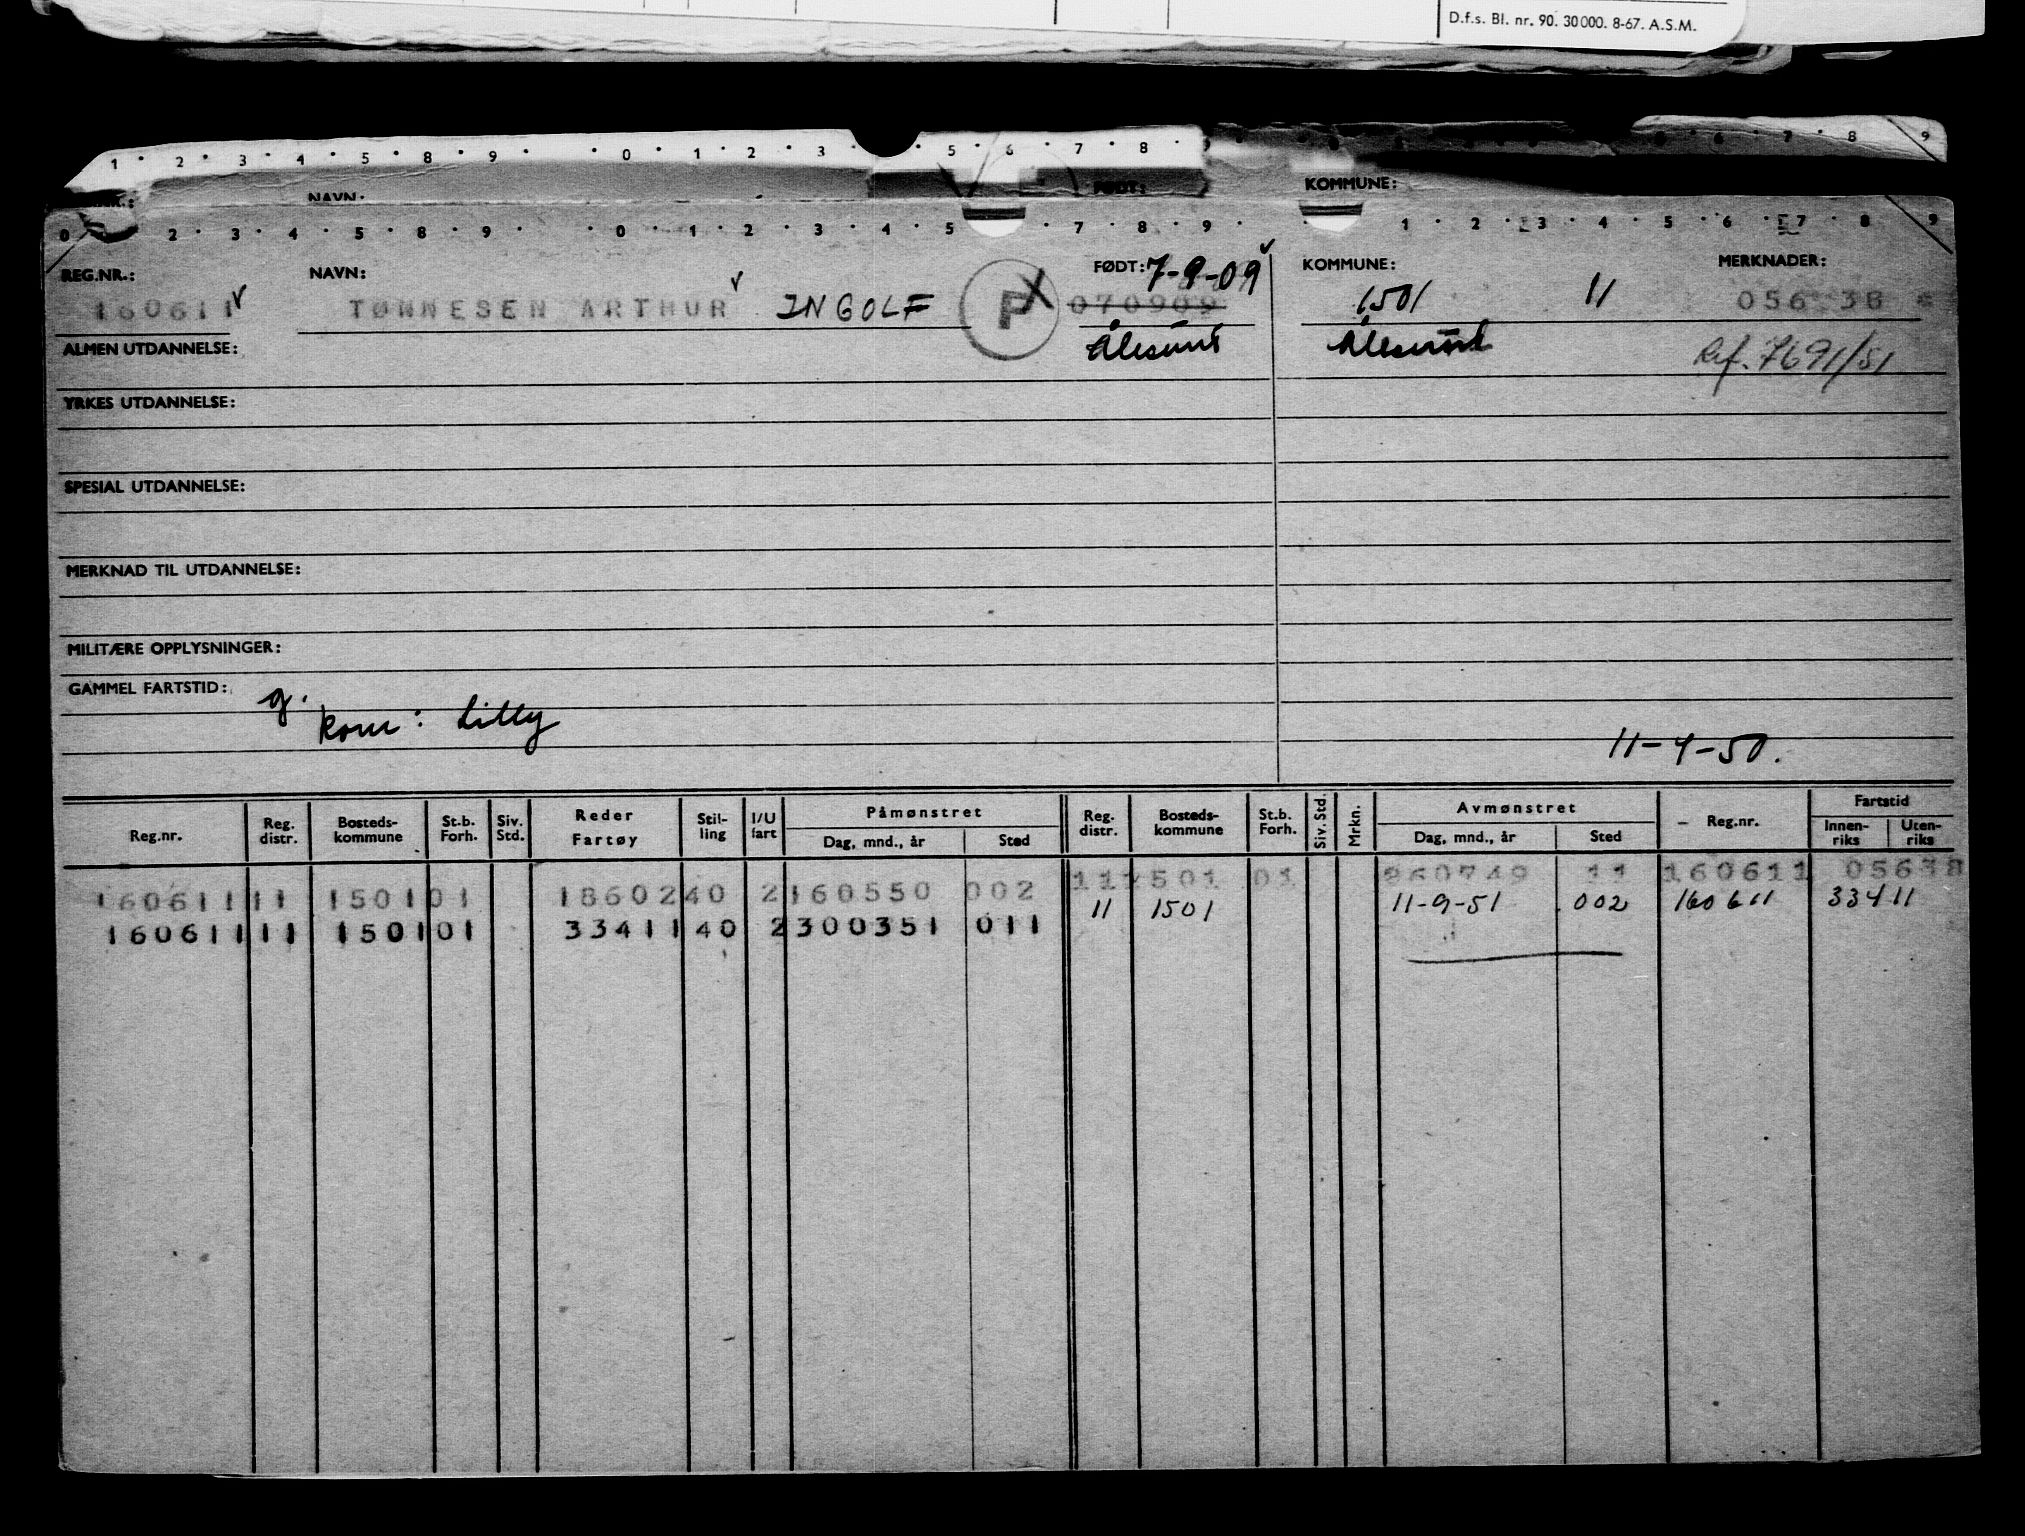 D.f.s. Bl. nr. 90. 30 000. 8-67. A.S.M.
1 · 2 · 3 · 4 · 5 · 8 · 9 · · 0 · 1 · 2 · 3 · 5 · 6 · 7 · 8 · 6 · 7 · 8 9
NAVN: FØDT: KOMMUNE:
0 2 · 3 · 4 · 5 · 8 · 9 · · 0 · 1 · 2 · 3 · 4 · 5 · 7 · 8 · 9 · · 1 · 2 · 3 · 4 · 5 · 6 · 7 · 8 · 9
REG.NR.: NAVN: FØDT: 7-9-09 KOMMUNE: MERKNADER:
160611 TØNNESEN ARTHUR INGOLF P 070909 1501 11 056 38
ALMEN UTDANNELSE: Ålesund Ålesund Ref. 7691/51
YRKES UTDANNELSE:
SPESIAL UTDANNELSE:
MERKNAD TIL UTDANNELSE:
MILITÆRE OPPLYSNINGER:
GAMMEL FARTSTID: g.
kone: Lilly
11-4-50.
Reg.nr. Reg. distr. Bosteds-kommune St.b. Forh. Siv. Std. Reder Fartøy Stil-ling I/U fart Påmønstret Dag, mnd., år Sted Reg. distr. Bosteds-kommune St.b. Forh. Siv. Std. Mrkn. Avmønstret Dag, mnd., år Sted Reg.nr. Fartstid Innen-riks Uten-riks
11 1501 01 260749 11 160611 05638
160611 11 1501 01 18602 40 2 160550 002
11 1501 11-9-51 002 160611 33411
160611 11 1501 01 33411 40 2 300351 011